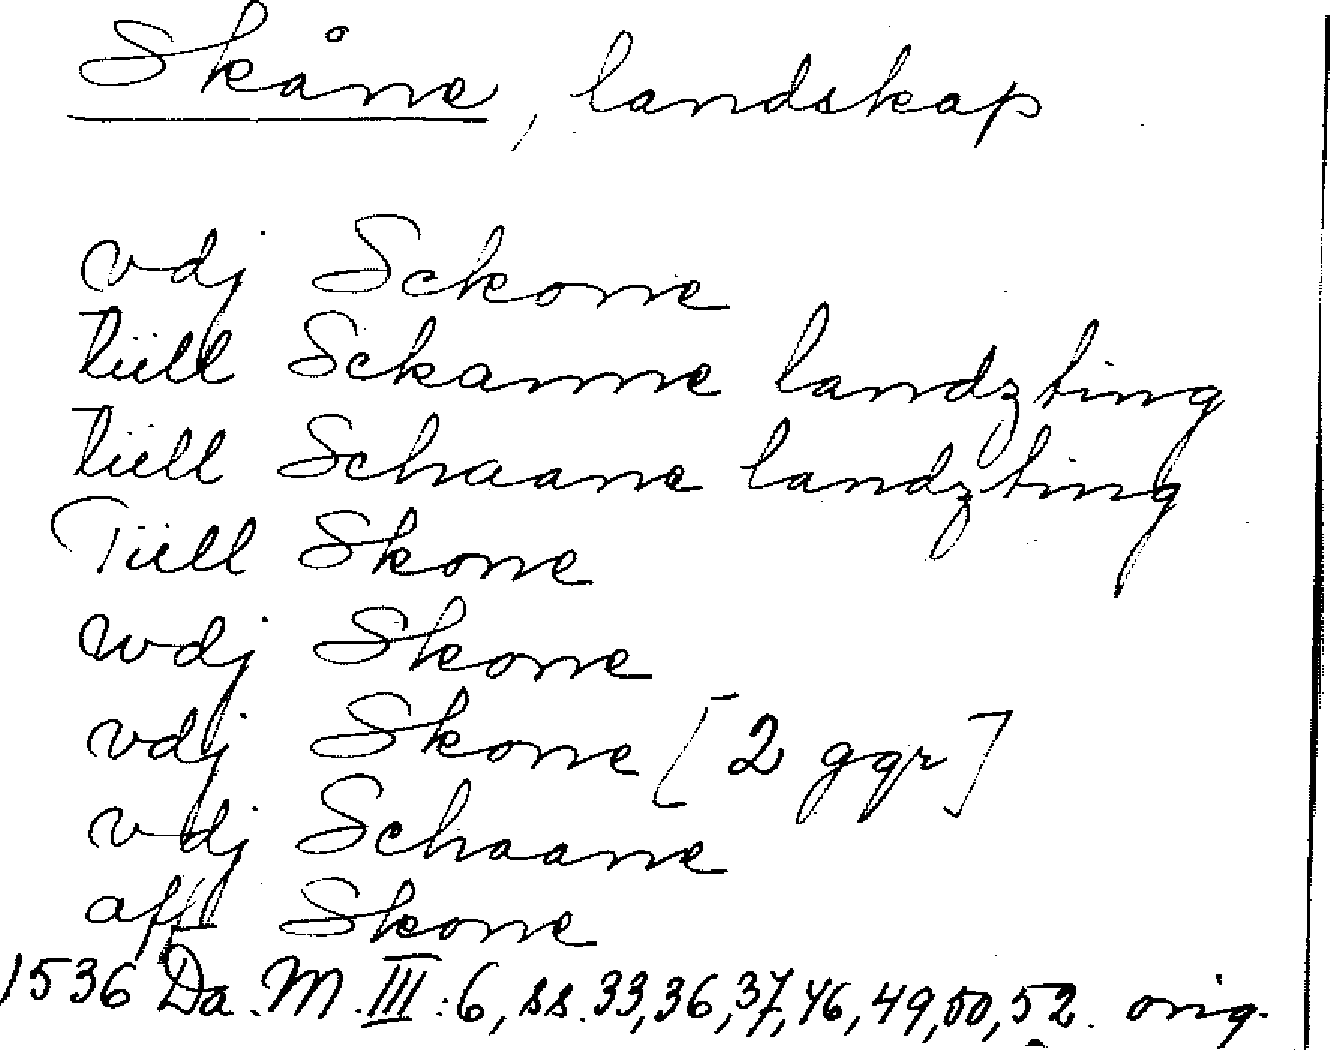 Skåne, landskap
vdj Sckone
tiill Sckanne landzting
tiill Schaane landzting
Tiill Skone
wdj Skone
vdj Skone [2 ggr]
vdj Schaane
aff Skone
1536 Da. M. III:6, ss. 33, 36, 37, 46, 49, 50, 52. orig.